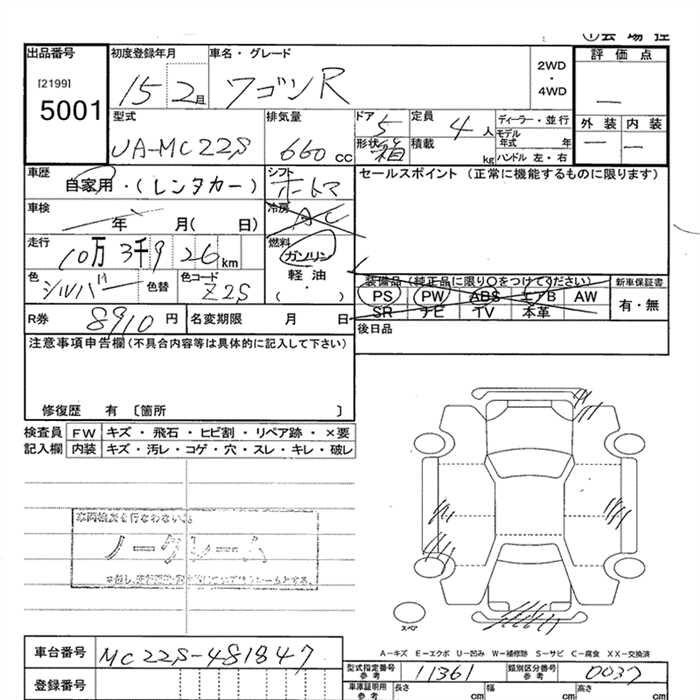 ①会場控
出品番号
[2199]
5001
初度登録年月
15 2月
車名・グレード
ワゴンR
2WD
・
4WD
評価点
—
型式
UA-MC22S
排気量
660 CC
ドア 5
形状 箱
定員 4 人
積載 kg
ディーラー・並行
モデル年式 年
ハンドル 左・右
外装 内装
— —
車歴
自家用・(レンタカー)
シフト
セールスポイント (正常に機能するものに限ります)
車検
年 月( 日)
冷房
AC
走行
10万3千9 26 km
燃料
ガソリン
軽油
(・)
色
シルバー
色替
色コード
Z2S
装備品(純正品に限り○をつけてください)
新車保証書
PS PW ABS エアB AW
有・無
SR ナビ TV 本革
R券 8910 円
名変期限 月 日
後日品
注意事項申告欄(不具合内容等は具体的に記入して下さい)
修復歴 有 〔箇所 〕
検査員 FW キズ・飛石・ヒビ割・リペア跡・×要
記入欄 内装 キズ・汚レ・コゲ・穴・スレ・キレ・破レ
車両検査を行なわない為
ノークレーム
スペア
A-キズ E-エクボ U-凹み W-補修跡 S-サビ C-腐食 XX-交換済
車台番号 MC22S-481847
登録番号
型式指定番号 参考 11361
類別区分番号 参考 0037
車庫証明用 参考
長さ cm
幅 cm
高さ cm